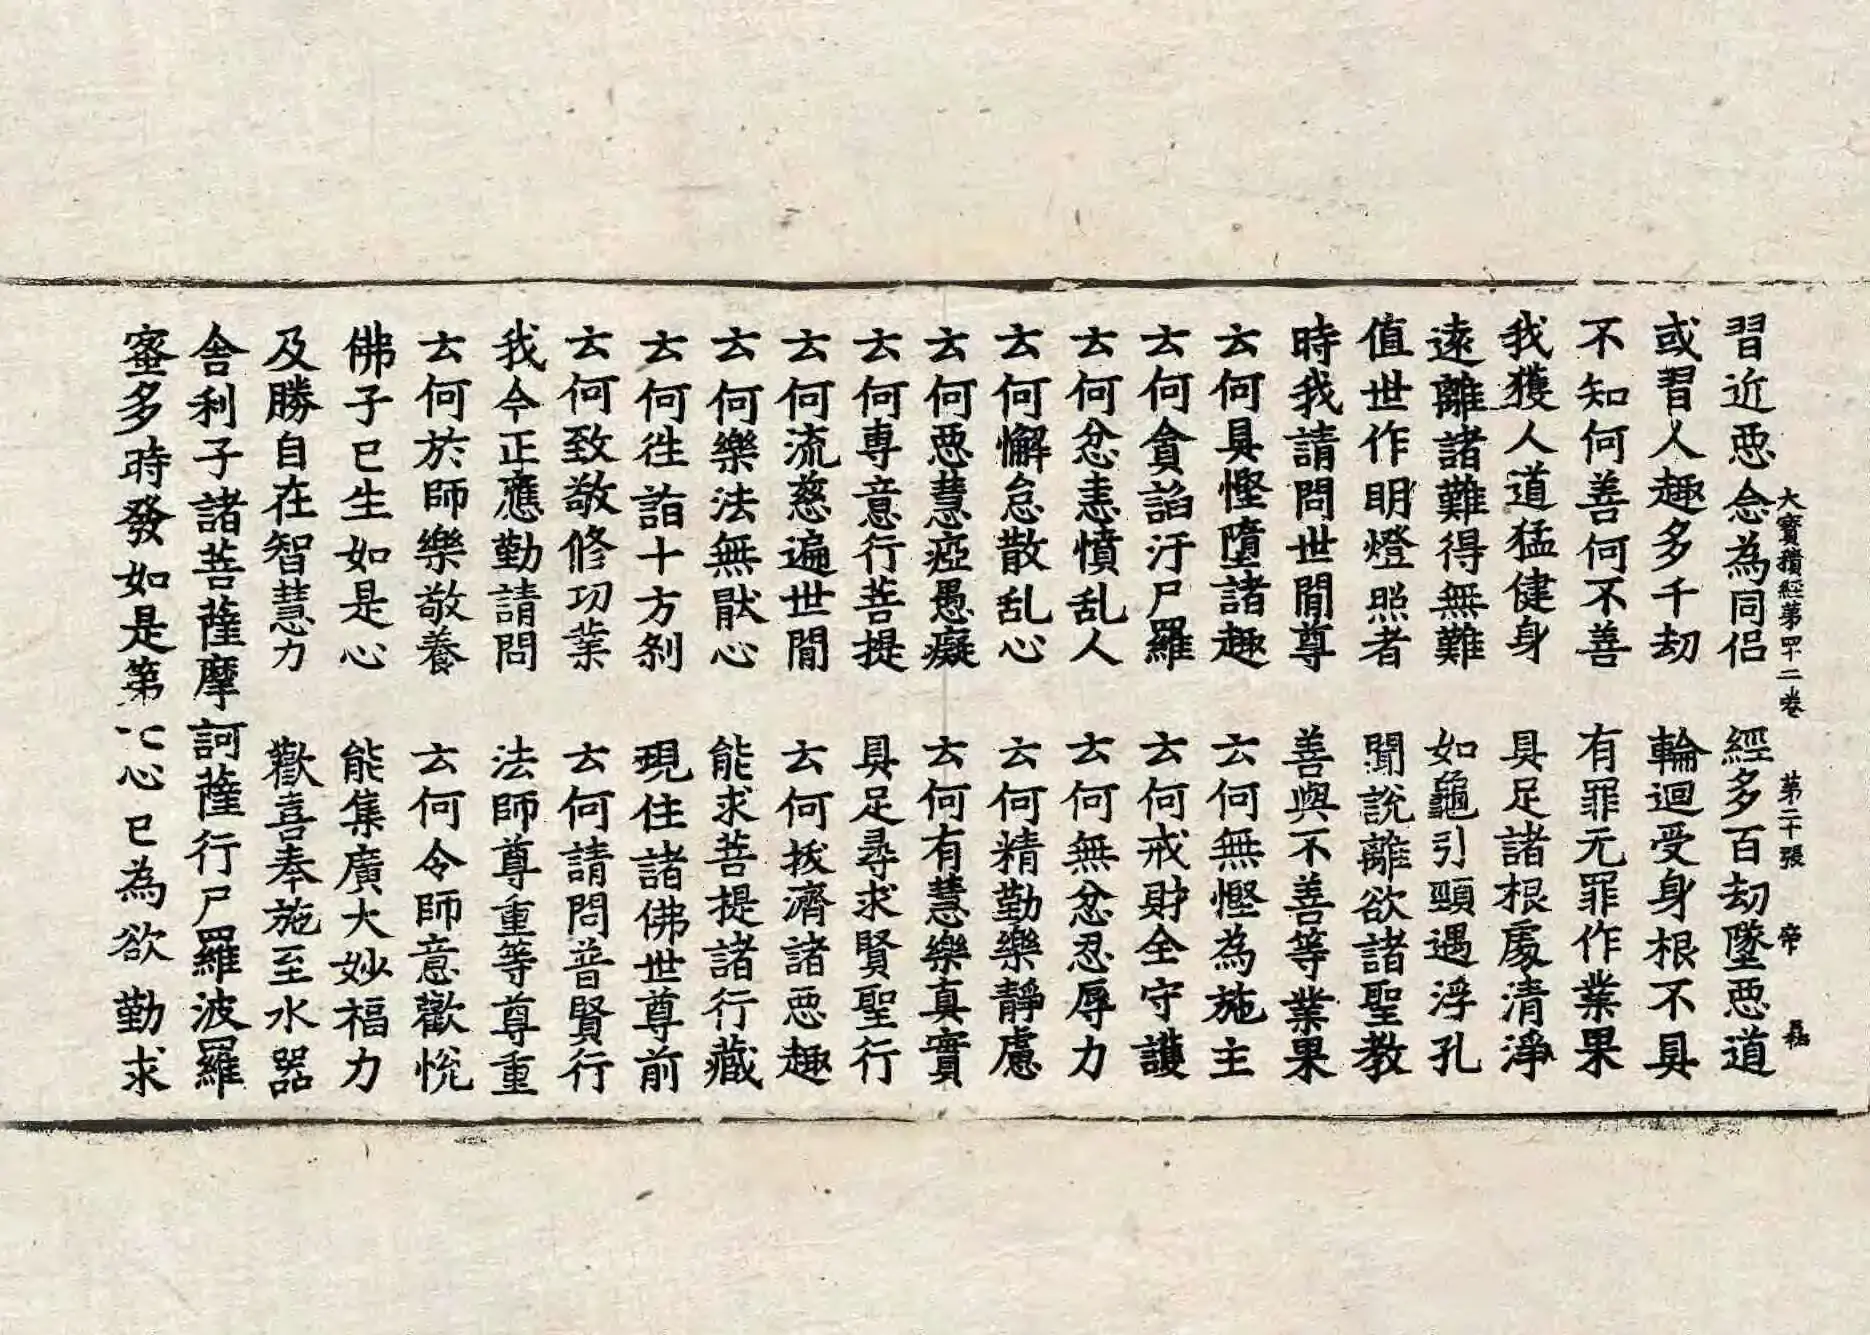 大寶積經第四十二卷 第二十張 帝
習近惡念為同侶 經多百劫墜惡道
或習人趣多千劫 輪迴受身根不具
不知何善何不善 有罪无罪作業果
我獲人道猛健身 具足諸根處清淨
遠離諸難得無難 如龜引頸遇浮孔
值世作明燈照者 聞說離欲諸聖教
時我請問世間尊 善與不善等業果
云何具慳墮諸趣 云何無慳為施主
云何貪諂汙尸羅 云何戒財全守護
云何忿恚憤乱人 云何無忿忍辱力
云何懈怠散乱心 云何精勤樂靜慮
云何惡慧瘂愚癡 云何有慧樂真實
云何專意行菩提 具足尋求賢聖行
云何流慈遍世間 云何拔濟諸惡趣
云何樂法無猒心 能求菩提諸行藏
云何往詣十方刹 現住諸佛世尊前
云何致敬修功業 云何請問普賢行
我今正應勤請問 法師尊重等尊重
云何於師樂敬養 云何令師意歡悅
佛子已生如是心 能集廣大妙福力
及勝自在智慧力 歡喜奉施至水器
舍利子諸菩薩摩訶薩行尸羅波羅
蜜多時發如是第 心已為欲勤求